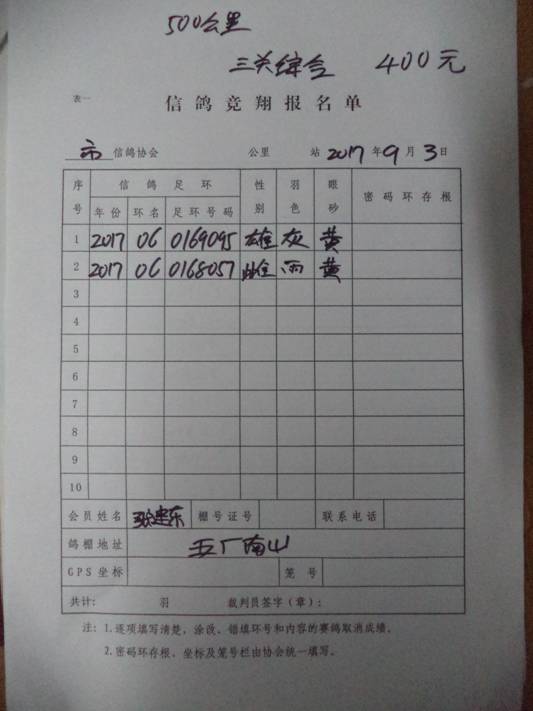 500公里
三关综合 400元
表一
信鸽竞翔报名单
市信鸽协会 公里 站2017年9月3日
序号 信鸽足环 性别 羽色 眼砂 密码环存根
年份 环名 足环号码
1 2017 06 0169095 雄 灰 黄
2 2017 06 0168057 雌 雨 黄
3
4
5
6
7
8
9
10
会员姓名 张建东 棚号证号 联系电话
鸽棚地址 五厂南山
GPS坐标 笼号
共计: 羽 裁判员签字(章):
注: 1.逐项填写清楚，涂改、错填环号和内容的赛鸽取消成绩。
2.密码环存根、坐标及笼号栏由协会统一填写。